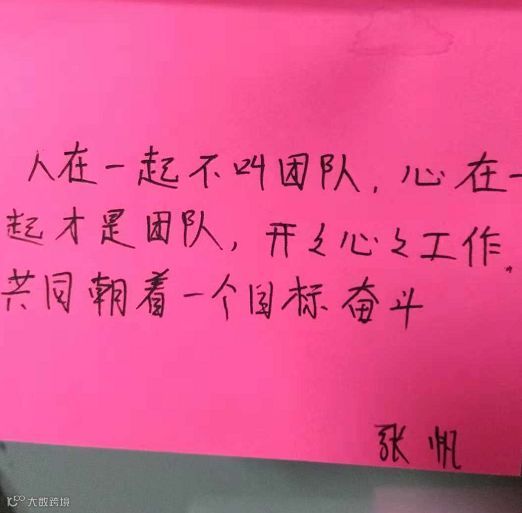 人在一起不叫团队，心在一
起才是团队，开々心々工作。
共同朝着一个目标奋斗
张帆
大数跨境